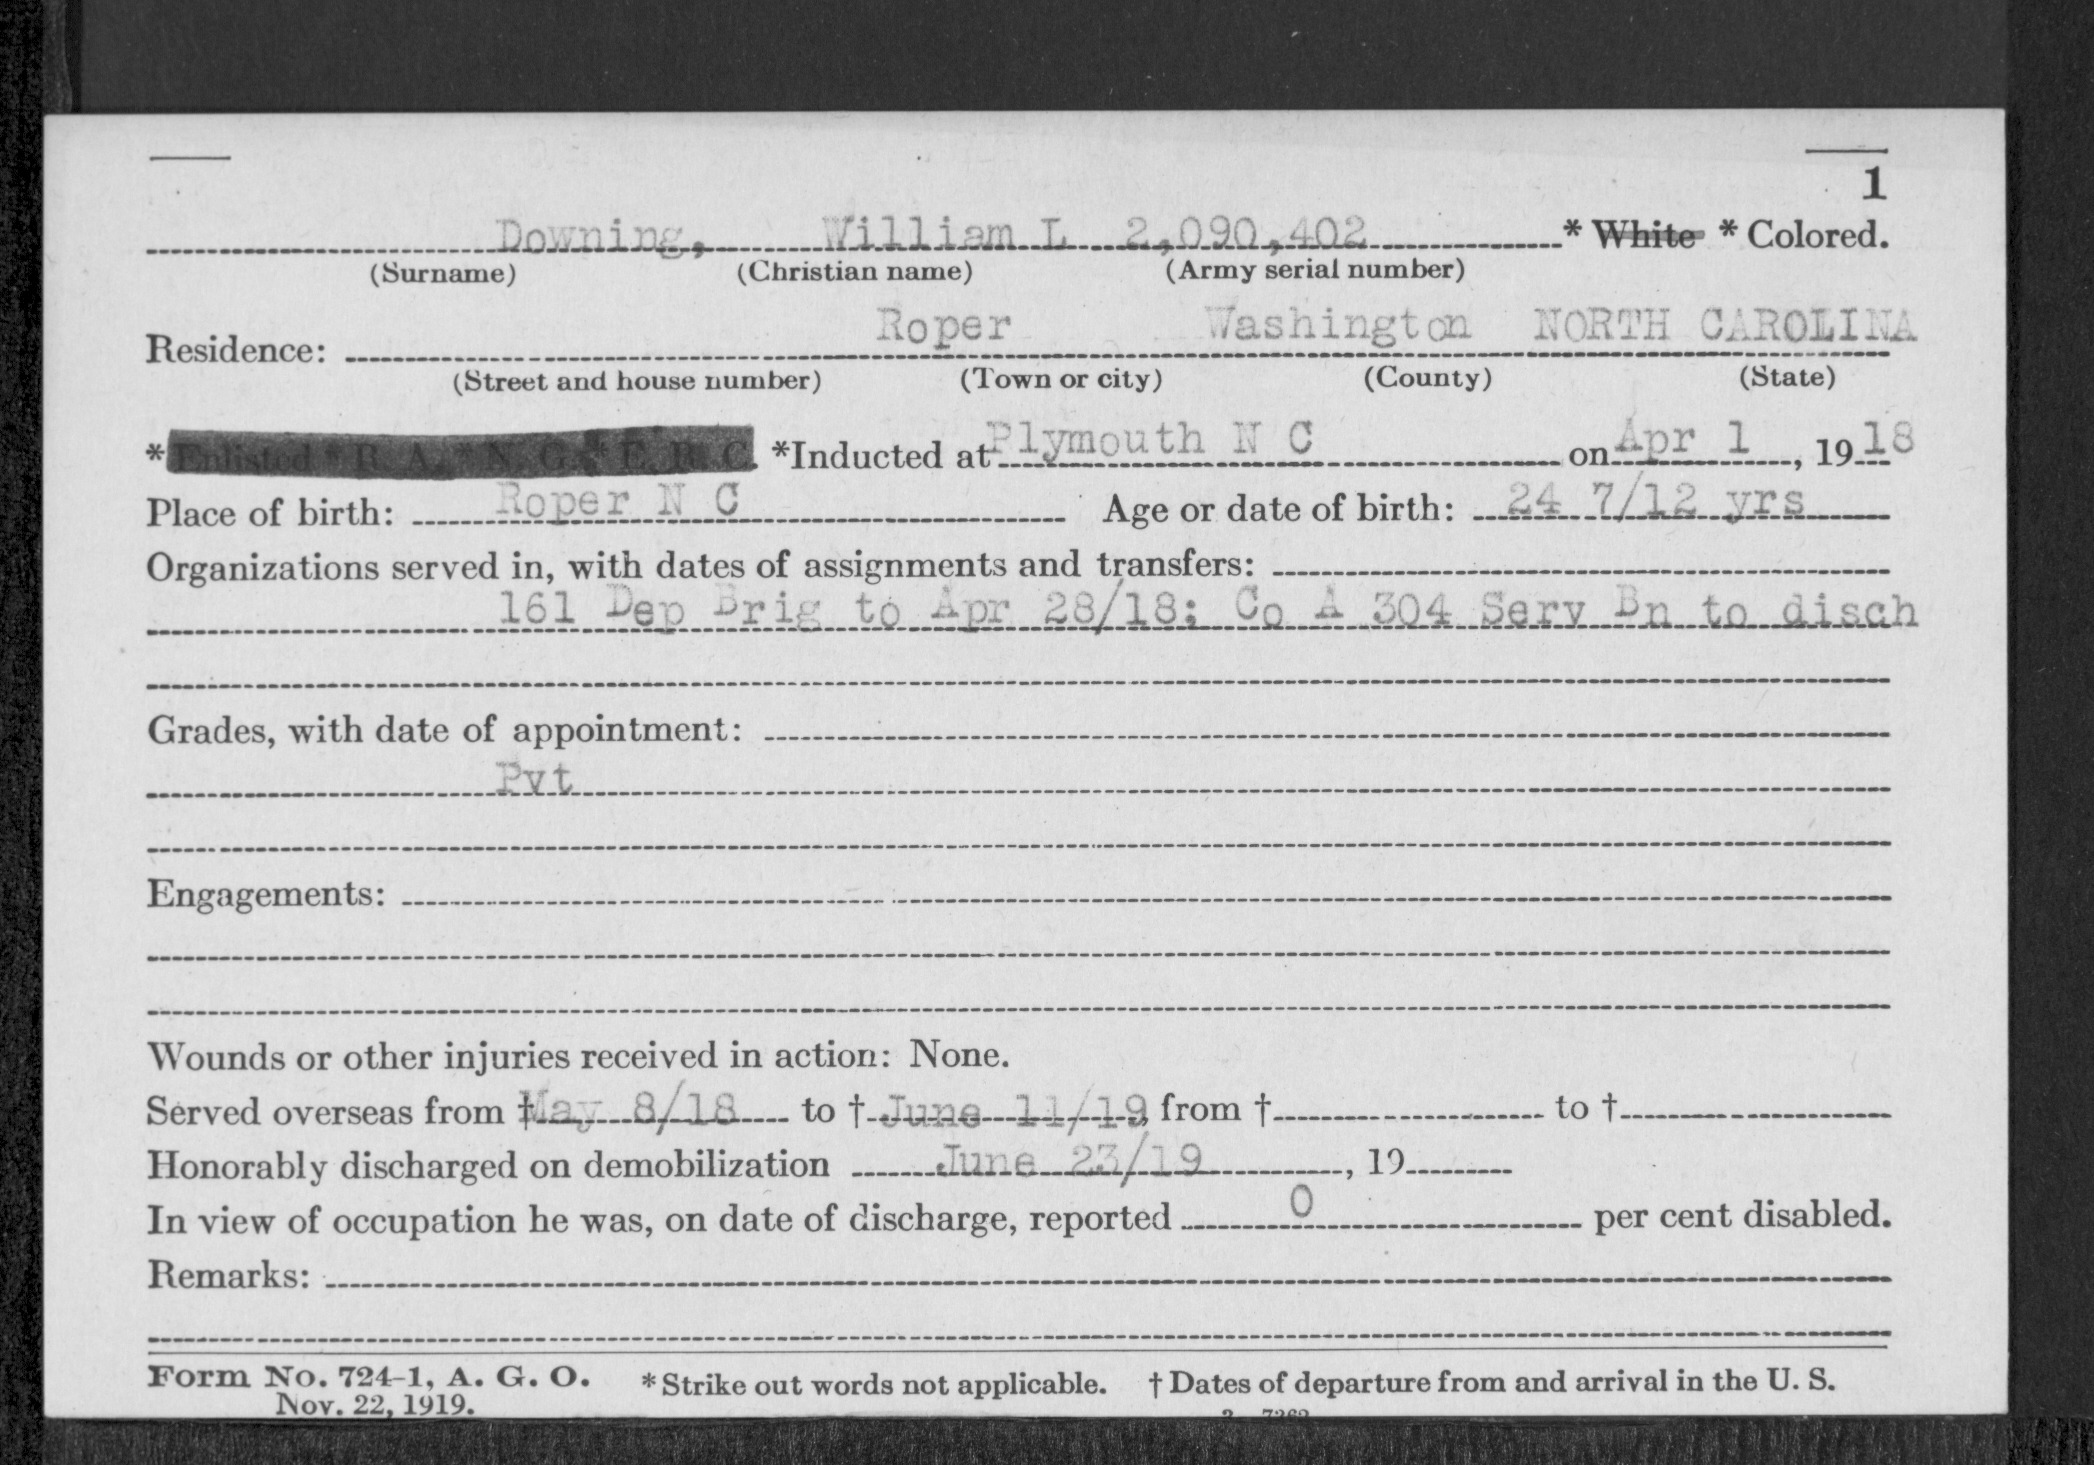 1
Downing, William L 2,090,402 * White * Colored.
(Surname) (Christian name) (Army serial number)
Roper Washington NORTH CAROLINA
Residence:
(Street and house number) (Town or city) (County) (State)
* Enlisted * R. A. * N. G. * E. R. C. *Inducted at Plymouth N C on Apr 1, 1918
Place of birth: Roper N C Age or date of birth: 24 7/12 yrs
Organizations served in, with dates of assignments and transfers:
161 Dep Brig to Apr 28/18; Co A 304 Serv Bn to disch
Grades, with date of appointment:
Pvt
Engagements:
Wounds or other injuries received in action: None.
Served overseas from † May 8/18 to † June 11/19, from † to †
Honorably discharged on demobilization June 23/19, 19
In view of occupation he was, on date of discharge, reported 0 per cent disabled.
Remarks:
Form No. 724-1, A. G. O. * Strike out words not applicable. † Dates of departure from and arrival in the U. S.
Nov. 22, 1919.